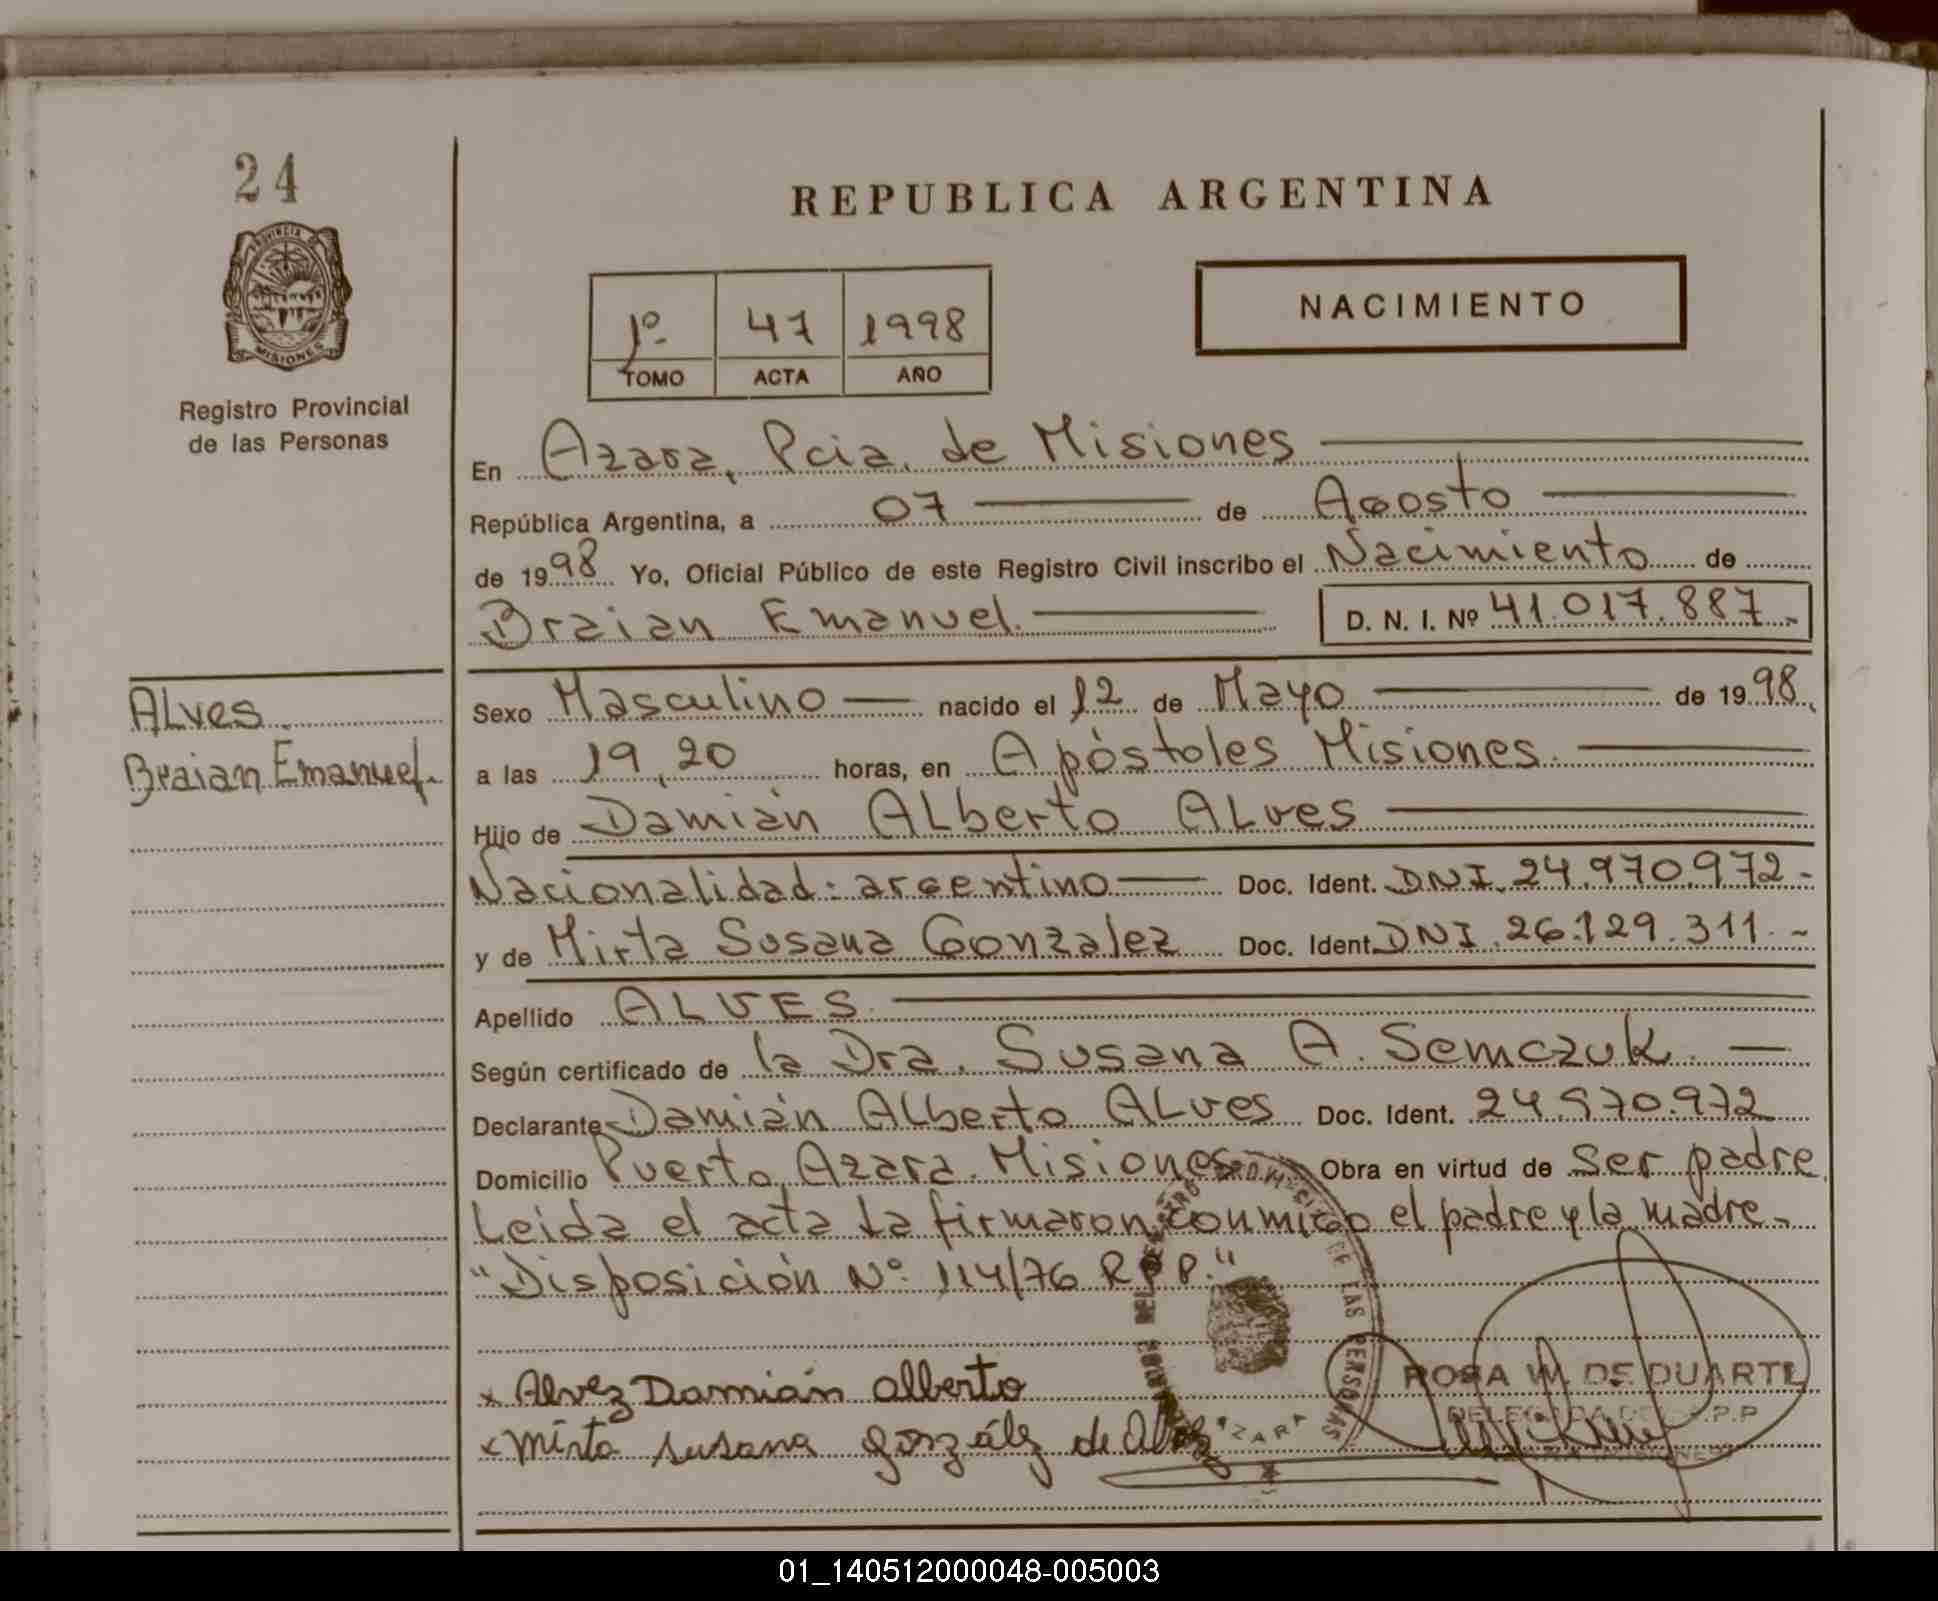 24
PROVINCIA DE
MISIONES
Registro Provincial
de las Personas
REPUBLICA ARGENTINA
1º 47 1998
TOMO ACTA AÑO
NACIMIENTO
En Azara, Pcia. de Misiones
República Argentina, a 07 de Agosto
de 1998 Yo, Oficial Público de este Registro Civil inscribo el Nacimiento de
Braian Emanuel. D. N. I. Nº 41.017.887.-
Alves
Braian Emanuel.
Sexo Masculino nacido el 12 de Mayo de 1998,
a las 19,20 horas, en Apóstoles Misiones.
Hijo de Damián Alberto Alves
Nacionalidad: argentino Doc. Ident. DNI. 24.970.972-
y de Mirta Susana Gonzalez Doc. Ident. DNI. 26.129.311.-
Apellido ALVES
Según certificado de la Dra. Susana A. Semczuk.
Declarante Damián Alberto Alves Doc. Ident. 24.970.972
Domicilio Puerto Azara. Misiones Obra en virtud de Ser padre.
Leida el acta la firmaron conmigo el padre y la madre.
"Disposición Nº 114/76 R.P.P."
x Alvez Damián alberto
x mirta susana gonzález de
DE LAS PERSONAS
AZARA
ROSA W. DE DUARTE
DELEGADA
01_140512000048-005003